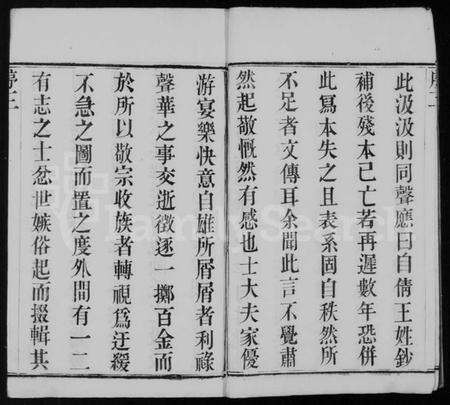 此汲汲則同聲應曰自倩王姓鈔
補後殘本已亡若再遲數年恐併
此寫本失之且表系固自秩然所
不足者文傳耳余聞此言不覺肅
然起敬慨然有感也士大夫家優
游宴樂快意自雄所屑屑者利祿
聲華之事交逝徵逐一擲百金而
於所以敬宗收族者轉視爲迂緩
不急之圖而置之度外間有一二
有志之士忿世嫉俗起而掇輯其
序三
FamilySearch